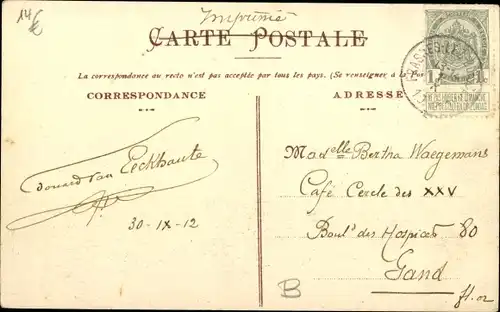 14 €
Imprimé
CARTE POSTALE
La correspondance au recto n'est pas acceptée par tous les pays. (Se renseigner à la
CORRESPONDANCE
ADRESSE
1c 1c
Edouard Van Eeckhaute
30-IX-12
Madelle Bertha Waegemans
Café Cercle des XXV
Boul. des Hospices 80
Gand
B
fl.or